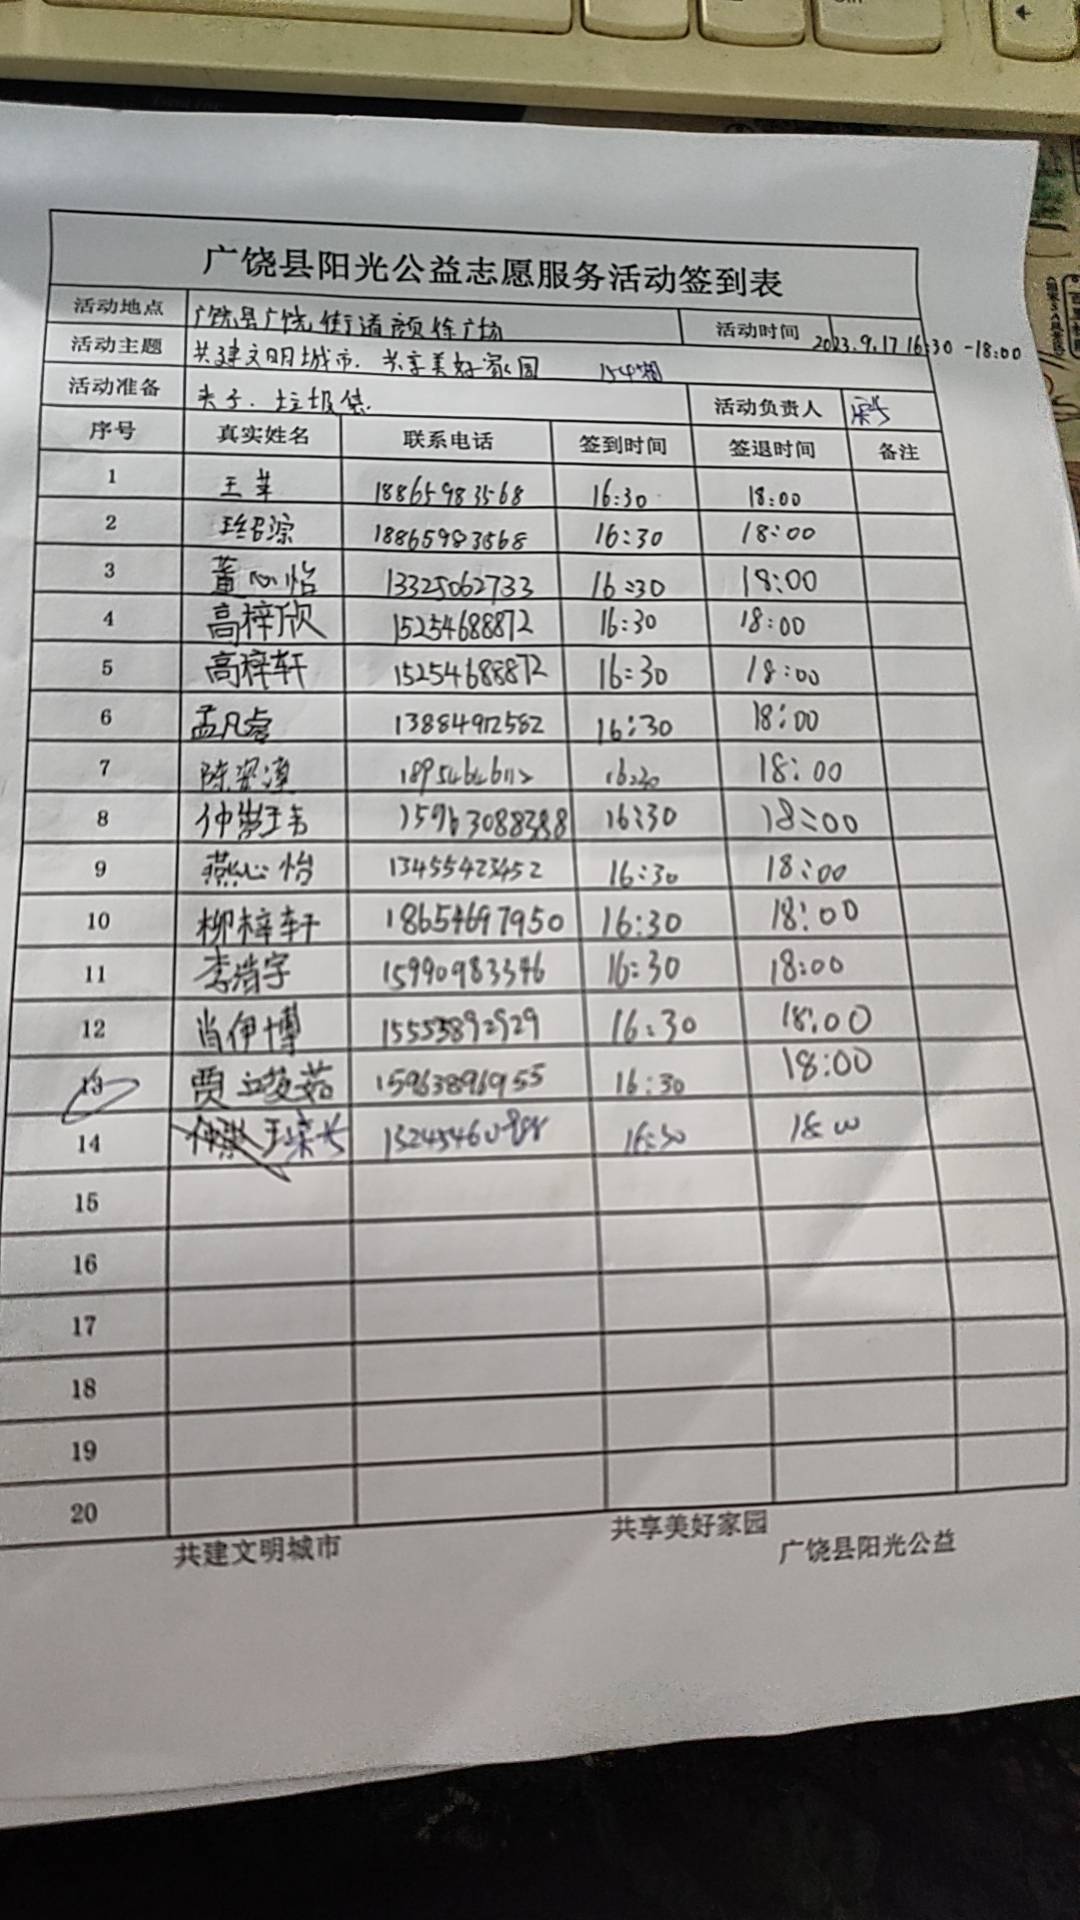 广饶县阳光公益志愿服务活动签到表
活动地点 广饶县广饶街道颜徐广场 活动时间 2023.9.17 16:30-18:00
活动主题 共建文明城市.共享美好家园
活动准备 夹子.垃圾袋. 活动负责人
序号 真实姓名 联系电话 签到时间 签退时间 备注
1 王苹 18865983568 16:30 18:00
2 18865983568 16:30 18:00
3 董心怡 13325062733 16:30 18:00
4 高梓欣 15254688872 16:30 18:00
5 高梓轩 15254688872 16:30 18:00
6 孟凡睿 13884912582 16:30 18:00
7 16:30 18:00
8 15963088388 16:30 18:00
9 燕心怡 13455423452 16:30 18:00
10 柳梓轩 18654697950 16:30 18:00
11 李浩宇 15990983346 16:30 18:00
12 肖伊博 15553892929 16:30 18:00
13 贾 15963896955 16:30 18:00
14 16:30 18:00
15
16
17
18
19
20
共建文明城市 共享美好家园 广饶县阳光公益